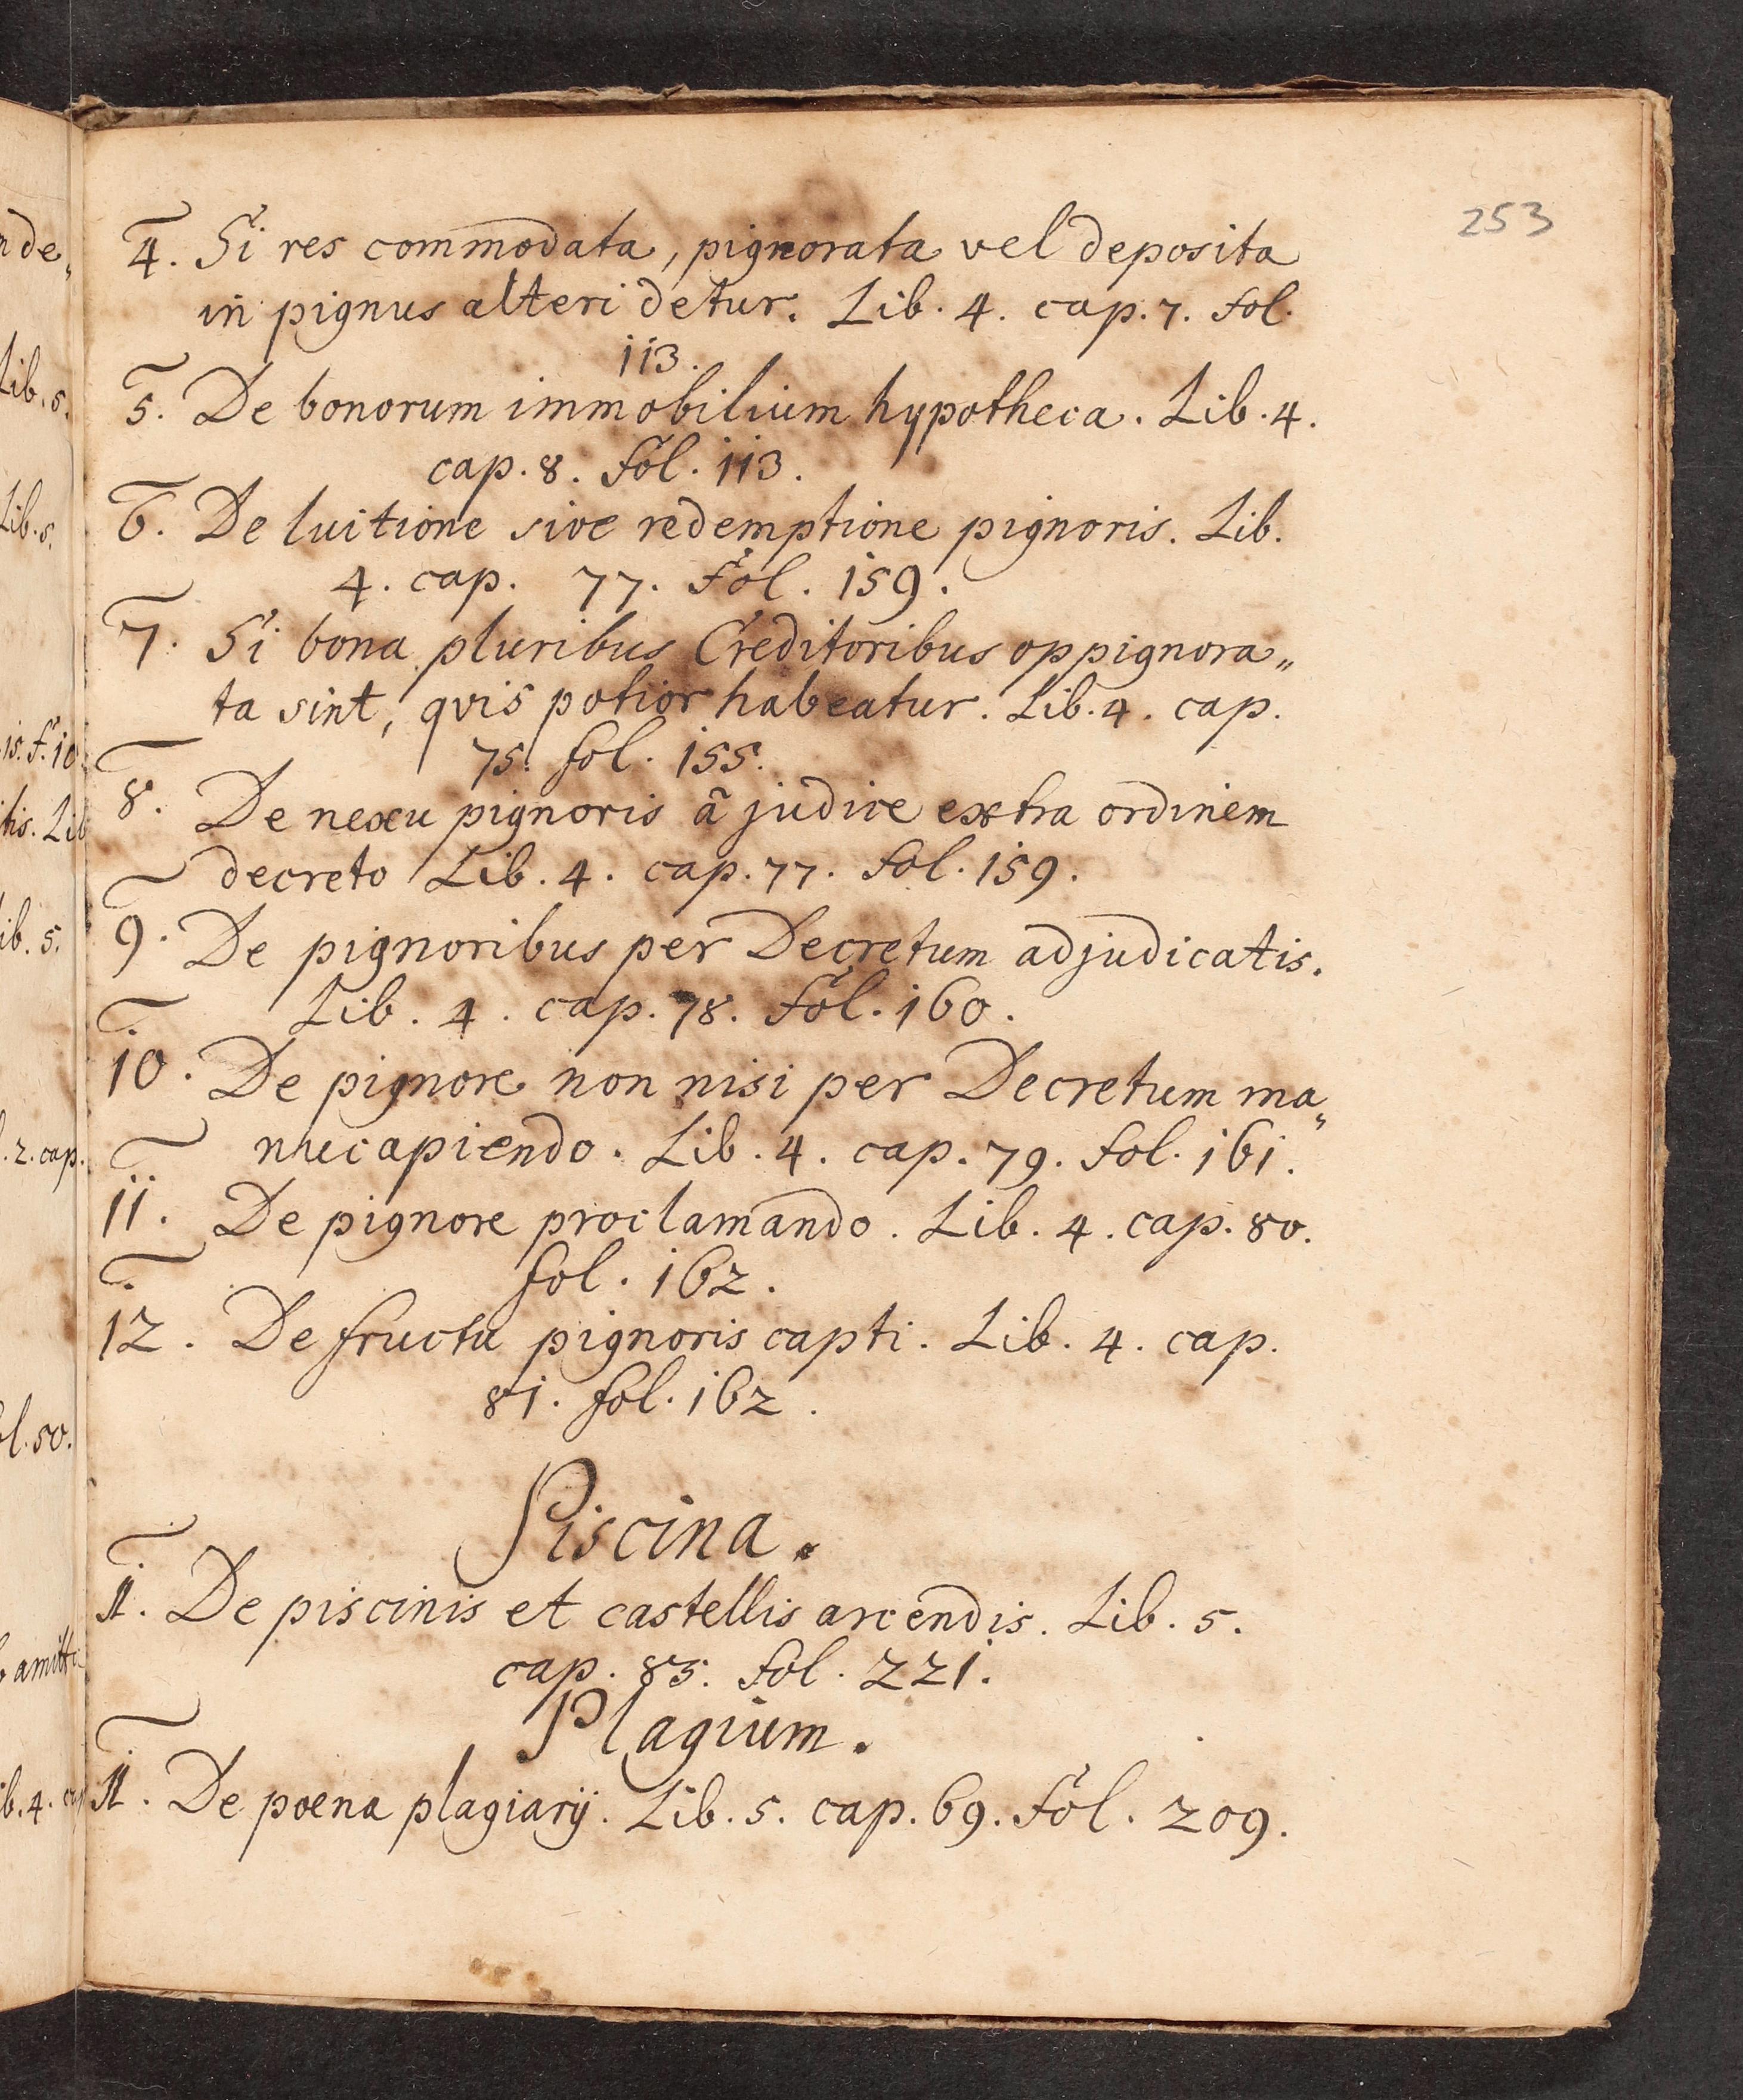 253
4. Si res commodata, pignorata vel deposita
in pignus alteri detur. Lib. 4. cap. 7. fol.
113.
5. De bonorum immobilium hypotheca. Lib. 4.
cap. 8. fol. 113.
6. De luitione sive redemptione pignoris. Lib.
4. cap. 77. fol. 159.
7. Si bona pluribus Creditoribus oppignora„
ta sint, qvis potior habeatur. Lib. 4. cap.
75. fol. 155.
8. De nexu pignoris â judice extra ordinem
decreto Lib. 4. cap. 77. fol. 159.
9. De pignoribus per Decretum adjudicatis.
Lib. 4. cap. 78. fol. 160.
10. De pignore non nisi per Decretum ma„
nucapiendo. Lib. 4. cap. 79. fol. 161.
11. De pignore proclamando. Lib. 4. cap. 80.
fol. 162.
12. De fructu pignoris capti. Lib. 4. cap.
81. fol. 162.
Piscina.
1. De piscinis et castellis arcendis. Lib. 5.
cap. 85. fol. 221.
Plagium.
1. De poena plagiarij. Lib. 5. cap. 69. fol. 209.